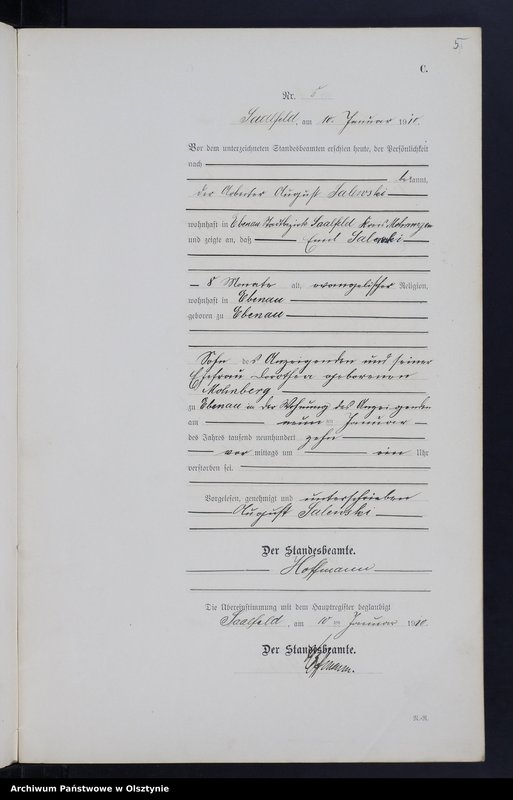 5.
C.
Nr. 5
Saalfeld, am 10. Januar 1910.
Vor dem unterzeichneten Standesbeamten erschien heute, der Persönlichkeit
nach
bekannt,
der Arbeiter August Salewski
wohnhaft in Ebenau Stadtbezirk Saalfeld Kreis Mohrungen
und zeigte an, daß Emil Salewski
8 Monate alt, evangelischer Religion,
wohnhaft in Ebenau
geboren zu Ebenau
Sohn des Anzeigenden und seiner
Ehefrau Dorothea geborenen
Mohnberg
zu Ebenau in der Wohnung des Anzeigenden
am neun ten Januar
des Jahres tausend neunhundert zehn
vor mittags um ein Uhr
verstorben sei.
Vorgelesen, genehmigt und unterschrieben
August Salewski
Der Standesbeamte.
Hoffmann
Die Übereinstimmung mit dem Hauptregister beglaubigt
Saalfeld, am 10 ten Januar 1910.
Der Standesbeamte.
Hoffmann.
R.-R.
Archiwum Państwowe w Olsztynie